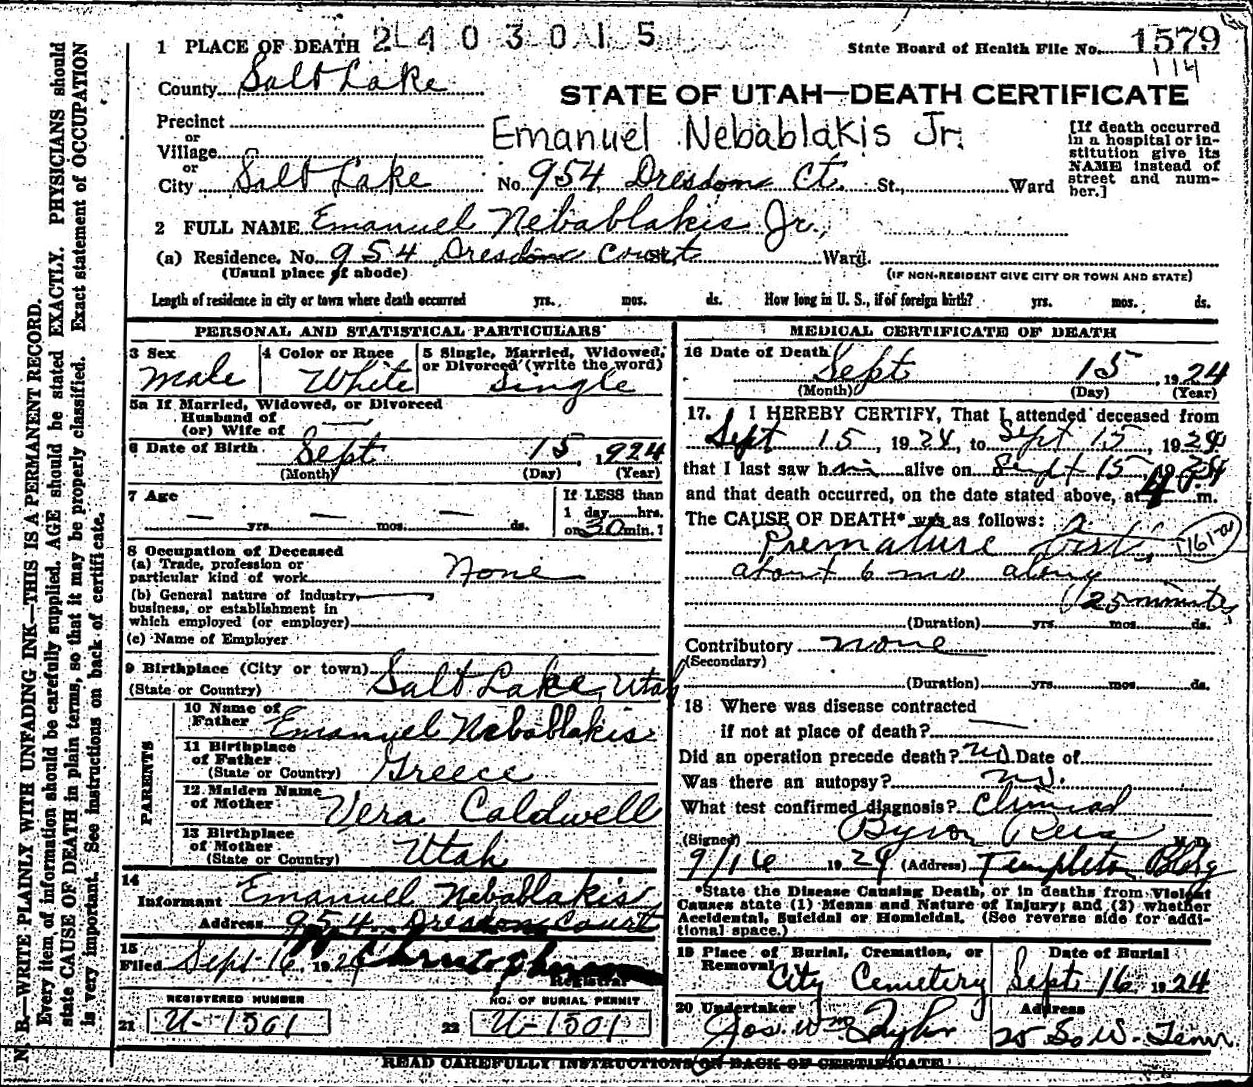 1 PLACE OF DEATH 2403015
State Board of Health File No. 1579
114
County Salt Lake
STATE OF UTAH—DEATH CERTIFICATE
Precinct
or
Village
Emanuel Nebablakis Jr.
[If death occurred in a hospital or institution give its NAME instead of street and number.]
or
City Salt Lake No. 954 Dresdon Ct. St., Ward
2 FULL NAME Emanuel Nebablakis Jr.,
(a) Residence. No. 954 Dresdon Court Ward.
(Usual place of abode) (IF NON-RESIDENT GIVE CITY OR TOWN AND STATE)
Length of residence in city or town where death occurred yrs. mos. ds. How long in U. S., if of foreign birth? yrs. mos. ds.
PERSONAL AND STATISTICAL PARTICULARS
3 Sex Male
4 Color or Race White
5 Single, Married, Widowed, or Divorced (write the word) Single
5a If Married, Widowed, or Divorced
Husband of
(or) Wife of
6 Date of Birth Sept 15, 1924
(Month) (Day) (Year)
7 Age — yrs. — mos. — ds.
If LESS than
1 day hrs.
or 30 min. ?
8 Occupation of Deceased
(a) Trade, profession or
particular kind of work None
(b) General nature of industry,
business, or establishment in
which employed (or employer)
(c) Name of Employer
9 Birthplace (City or town) Salt Lake, Utah
(State or Country)
PARENTS
10 Name of Father Emanuel Nebablakis
11 Birthplace of Father Greece
(State or Country)
12 Maiden Name of Mother Vera Caldwell
13 Birthplace of Mother Utah
(State or Country)
14
Informant Emanuel Nebablakis
Address 954 Dresdon Court
15
Filed Sept 16, 1924
Registrar
REGISTERED NUMBER
21 U-1501
NO. OF BURIAL PERMIT
22 U-1501
MEDICAL CERTIFICATE OF DEATH
16 Date of Death Sept 15, 1924
(Month) (Day) (Year)
17. I HEREBY CERTIFY, That I attended deceased from
Sept 15, 1924, to Sept 15, 1924
that I last saw him alive on Sept 15, 1924
and that death occurred, on the date stated above, at 4 m.
The CAUSE OF DEATH* was as follows:
Premature birth,
about 6 mo along
25 minutes
(Duration) yrs. mos. ds.
Contributory none
(Secondary)
(Duration) yrs. mos. ds.
18 Where was disease contracted
if not at place of death? —
Did an operation precede death? no Date of
Was there an autopsy? no.
What test confirmed diagnosis? Clinical
(Signed) Byron Rees M. D.
9/16 1924 (Address) Templeton Bldg
*State the Disease Causing Death, or in deaths from Violent
Causes state (1) Means and Nature of Injury; and (2) whether
Accidental, Suicidal or Homicidal. (See reverse side for addi-
tional space.)
19 Place of Burial, Cremation, or Removal City Cemetery
Date of Burial Sept 16, 1924
20 Undertaker Jos. Wm. Taylor
Address 25 So W. Tem.
READ CAREFULLY INSTRUCTIONS ON BACK OF CERTIFICATE
N. B.—WRITE PLAINLY WITH UNFADING INK—THIS IS A PERMANENT RECORD.
Every item of information should be carefully supplied. AGE should be stated EXACTLY. PHYSICIANS should
state CAUSE OF DEATH in plain terms, so that it may be properly classified. Exact statement of OCCUPATION
is very important. See instructions on back of certificate.